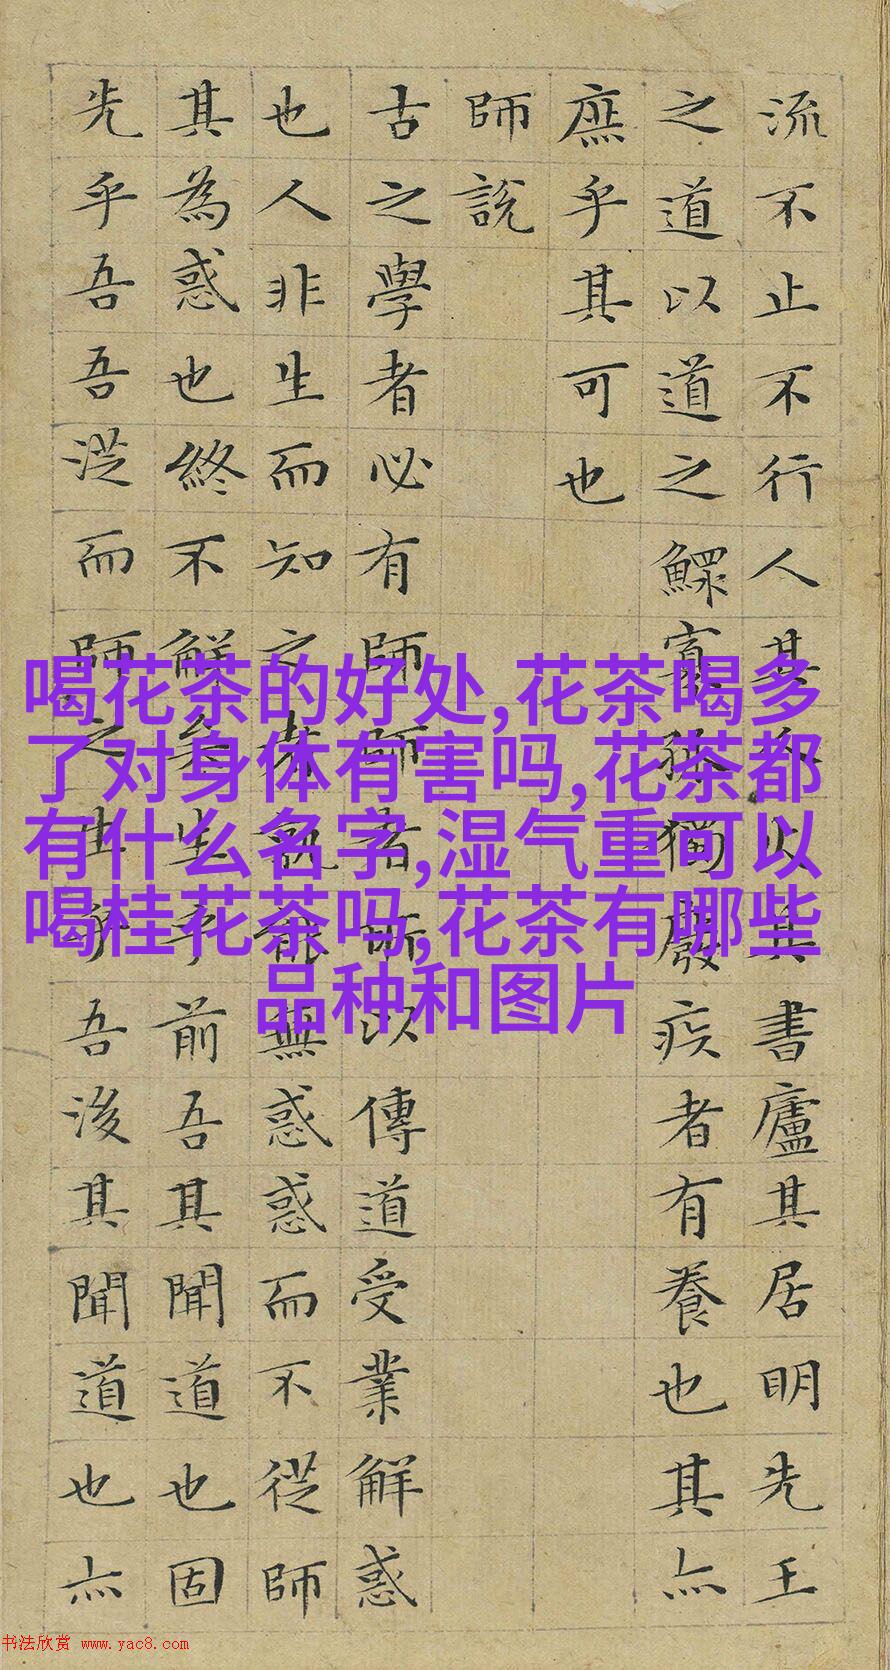 流不止不行人其人火其書廬其居明先王
之道以道之鰥寡孤獨廢疾者有養也其亦
庶乎其可也
師說
古之學者必有師師者所以傳道受業解惑
也人非生而知之者孰能無惑惑而不從師
其為惑也終不解矣生乎前吾其聞道也固
先乎吾吾從而師之生乎吾後其聞道也亦
喝花茶的好处,花茶喝多
了对身体有害吗,花茶都
有什么名字,湿气重可以
喝桂花茶吗,花茶有哪些
品种和图片
书法欣赏 www.yac8.com